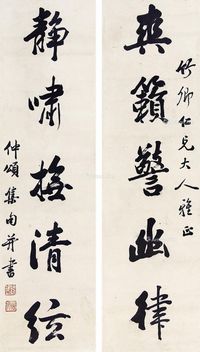 竹卿仁兄大人雅正
爽籟警幽律
静嘯撫清弦
仲頌集句并書